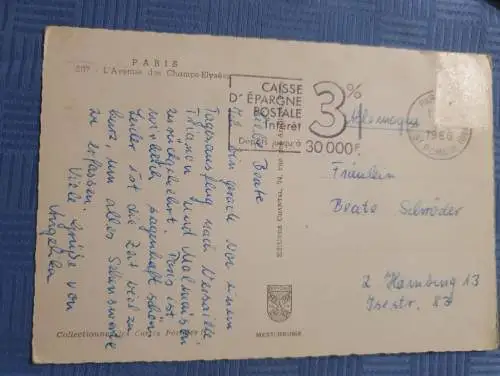 PARIS
207 - L'Avenue des Champs-Elysées
CAISSE
D'ÉPARGNE
POSTALE
Intérêt
3%
Dépôts jusqu'à
30 000 F
PARIS
1966
Liebe Beate
Ich bin gerade von einem
Tagesausflug nach Versailles
Trianon und Malmaison
zurückgekehrt. Paris ist
wirklich sagenhaft schön
leider ist die Zeit viel zu
kurz, um alles Sehenswerte
zu erfassen.
Viele Grüße von
Angelika
Allemagne
Fräulein
Beate Schröder
2 Hamburg 13
Isestr. 83
EDITIONS CHANTAL, 74, rue
MEXICHROME
Collectionnez les Cartes Postales